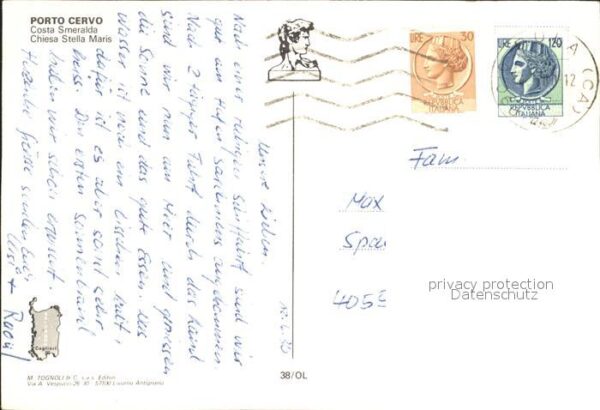 PORTO CERVO
Costa Smeralda
Chiesa Stella Maris
LIRE 30
REPVBBLICA
ITALIANA
LIRE 120
REPVBBLICA
ITALIANA
(CA)
12
Unsere Lieben.
Nach einer ruhigen Schiffahrt sind wir
gut am Hafen Sardiniens angekommen.
Nach 2 tägiger Fahrt durch das Land
sind wir nun am Meer und geniessen
die Sonne und das gute Essen. Das
Wasser ist noch ein bisschen kalt,
dafür ist es aber sonst sehr
heiss. Den ersten Sonnenbrand
haben wir schon erwischt.
Herzliche Grüsse senden Euch
Ursi + Ruedi
Fam
Max
Spa
4055
privacy protection
Datenschutz
Cagliari
M. TOGNOLI & C. s.a.s. Editori
Via A. Vespucci 57100 Livorno Antignano
38/OL